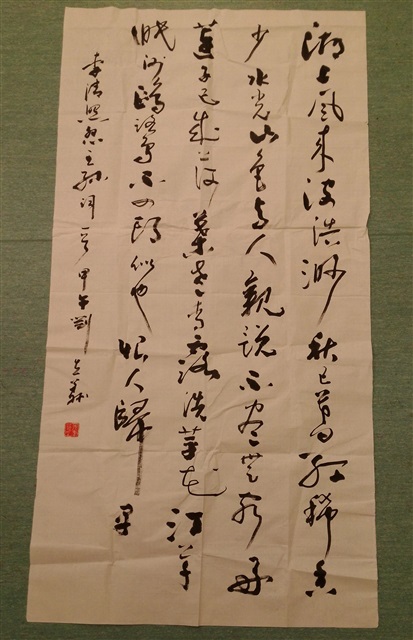 湖上風來波浩渺秋已暮紅稀香
少水光山色与人親說不盡無窮好
蓮子已成荷葉老青露洗苹花汀草
眠沙鷗鷺不回頭似也恨人歸早
李清照怨王孫詞一首甲午劉